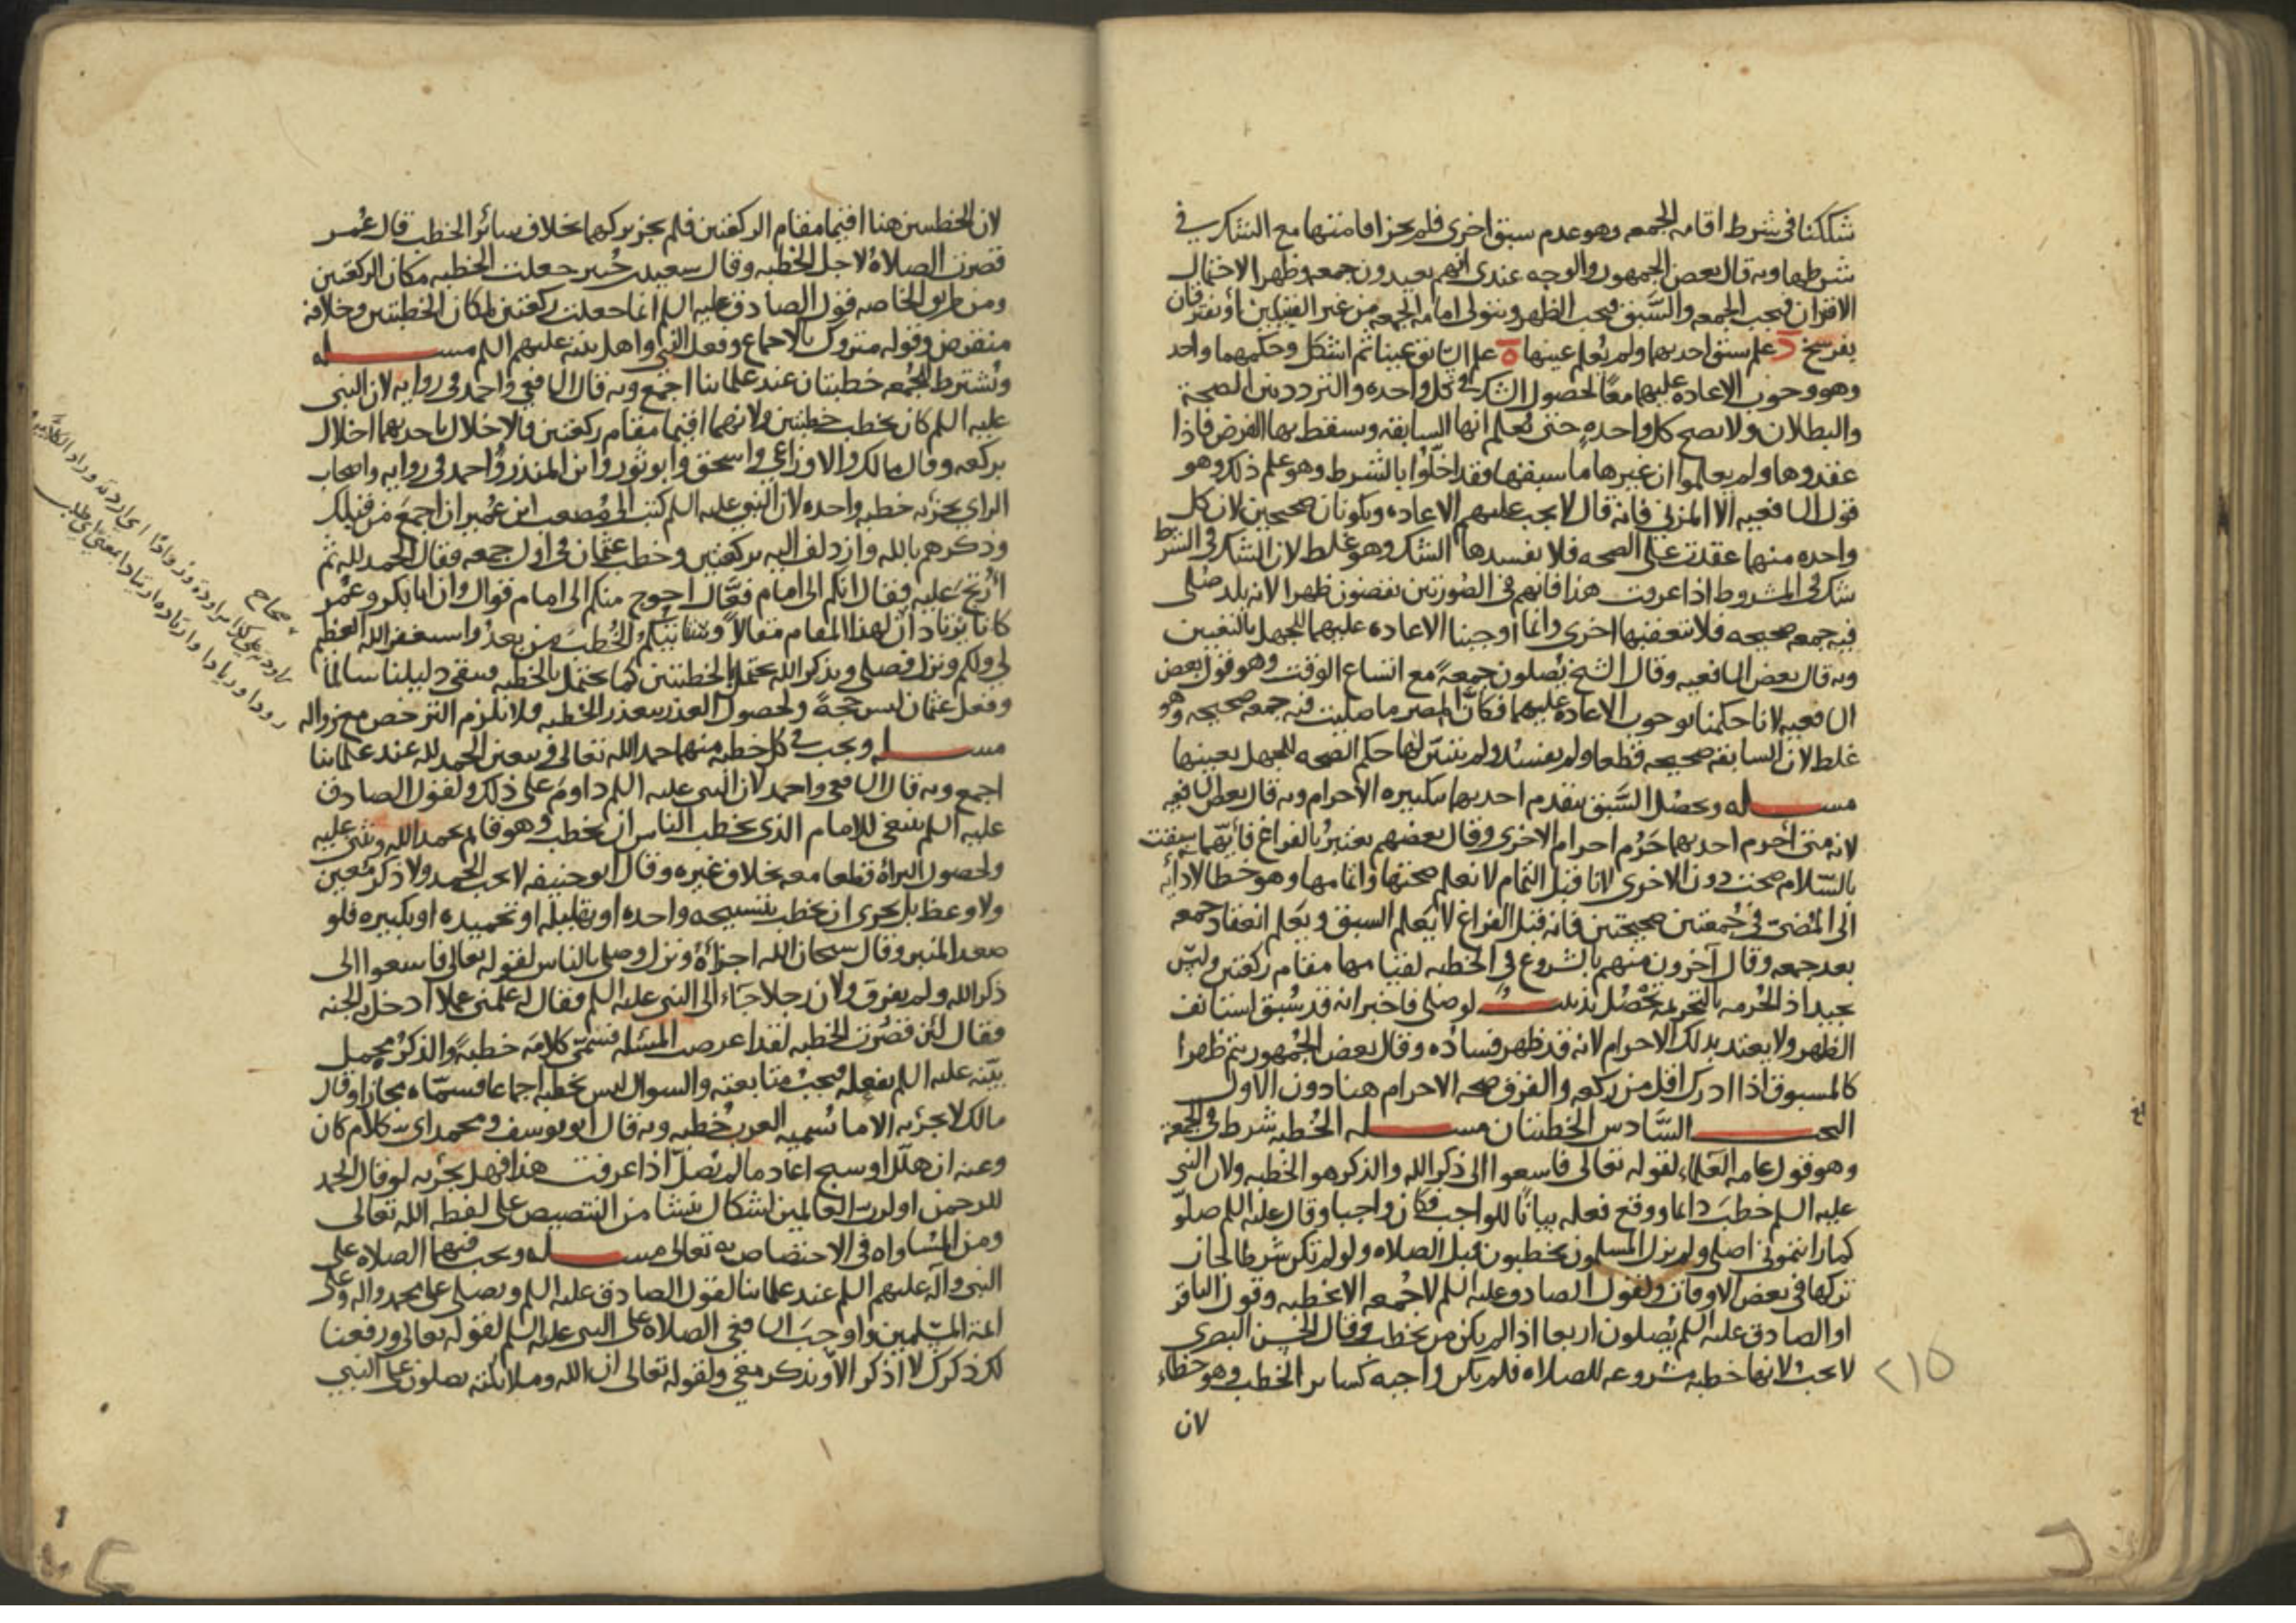 شككنا في شرط اقامه الجمعه وهو عدم سبق اخرى فلم يجز اقامتها مع الشك في
شرطها وبه قال بعض الجمهور والوجه عندي انهم يعيدون جمعه وظهرا لاحتمال
الاقتران فيجب الجمعه والسبق فيجب الظهر ويتولى امامه الجمعه من غير القبيلين او يفترقان
بفرسخ د علم سبق احديهما ولم يعلم عينها ه علم السابق عينا ثم اشكل وحكمهما واحد
وهو وجوب الاعاده عليهما معا لحصول الشك في كل واحده والتردد بين الصحة
والبطلان ولا تصح كل واحده حتى يعلم انها السابقه ويسقط بها الفرض فاذا
عقدوها ولم يعلموا ان غيرها ما سبقها فقد اخلوا بالشرط وهو علم ذلك وهو
قول الشافعيه الا المزني فانه قال لا يجب عليهم الاعاده ويكونان صحيحين لان كل
واحده منهما عقدت على الصحه فلا يفسدها الشك وهو غلط لان الشك في الشرط
شك في المشروط اذا عرفت هذا فانهم في الصورتين يقضون ظهرا لانه بلد صلى
فيه جمعه صحيحه فلا تتعقبها اخرى وانما اوجبنا الاعاده عليهما للجهل بالتعيين
وبه قال بعض الشافعيه وقال الشيخ يصلون جمعة مع اتساع الوقت وهو قول بعض
الشافعيه لانا حكمنا بوجوب الاعاده عليهما فكان المصر ما صليت فيه جمعه صحيحه وهو
غلط لان السابقه صحيحه قطعا ولم يفسد ولم يتبين لها حكم الصحه للجهل بعينها
مسـله ويحصل السبق بتقدم احديهما بتكبيره الاحرام وبه قال بعض الشافعيه
لانه متى احرم احديهما حرم احرام الاخرى وقال بعضهم يعتبر بالفراغ فايهما سبقت
بالسلام صحت دون الاخرى لانا قبل التمام لا نعلم صحتها واتمامها وهو خطا لادائه
الى المضي في جمعتين صحيحتين فانه قبل الفراغ لا يعلم السبق ويعلم انعقاد جمعه
بعد جمعه وقال آخرون منهم بالشروع في الخطبه لقيامها مقام ركعتين وليس
بجيد اذ الحرمه بالتحريمه تحصل تذنيب لو صلى فاخبر انه قد سبق استانف
الظهر ولا يعتد بذلك الاحرام لانه قد ظهر فساده وقال بعض الجمهور يتم ظهرا
كالمسبوق اذا ادرك اقل من ركعه والفرق صحه الاحرام هنا دون الاول
البحث السادس الخطبتان مسـله الخطبه شرط في الجمعة
وهو قول عامه العلماء لقوله تعالى فاسعوا الى ذكر الله والذكر هو الخطبه ولان النبي
عليه السلم خطب دائما ووقع فعله بيانا للواجب فكان واجبا وقال عليه السلم صلوا
كما رايتموني اصلي ولم يزل المسلمون يخطبون قبل الصلاه ولو لم تكن شرطا لجاز
تركها في بعض الاوقات ولقول الصادق عليه السلم لا جمعه الا بخطبه وقول الباقر
او الصادق عليه السلم يصلون اربعا اذا لم يكن من يخطب وقال الحسن البصري
لا يجب لانها خطبه مشروعه للصلاه فلم يكن واجبه كساير الخطب وهو خطاء
لان
٢١٥
لان الخطبتين هنا اقيما مقام الركعتين فلم يجز تركهما بخلاف سائر الخطب قال عمر
قصرت الصلاة لاجل الخطبه وقال سعيد بن جبير جعلت الخطبه مكان الركعتين
ومن طريق الخاصه قول الصادق عليه السلم انما جعلت ركعتين لمكان الخطبتين وخلافه
منقرض وقوله متروك بالاجماع وفعل النبي واهل بيته عليهم السلم مسـله
ويشترط للجمعه خطبتان عند علمائنا اجمع وبه قال الشافعي واحمد في روايه لان النبي
عليه السلم كان يخطب خطبتين ولانهما اقيما مقام ركعتين فالاخلال باحديهما اخلال
بركعه وقال مالك والاوزاعي واسحق وابو ثور وابن المنذر واحمد في روايه واصحاب
الراي يجزيه خطبه واحده لان النبي عليه السلم كتب الى مصعب ابن عمير ان اجمع من قبلك
وذكرهم بالله وازدلف اليه بركعتين وخطب عثمان في اول جمعه فقال الحمد لله ثم
ارتج عليه فقال انكم الى امام فعّال احوج منكم الى امام قوال وان ابا بكر وعمر
كانا يرتادان لهذا المقام مقالا وستاتيكم الخطب من بعد واستغفر الله العظيم
لي ولكم ونزل فصلى ويذكر الله يحتمل الخطبتين كما يحتمل الخطبه فبقى دليلنا سالما
وفعل عثمان ليس حجة ولحصول العذر بتعذر الخطبه فلا يلزم الترخص مع زواله
مسـله ويجب في كل خطبه منهما حمد الله تعالى ويتعين الحمد لله عند علمائنا
اجمع وبه قال الشافعي واحمد لان النبي عليه السلم داوم على ذلك ولقول الصادق
عليه السلم ينبغي للامام الذي يخطب الناس ان يخطب وهو قائم يحمد الله ويثني عليه
ولحصول البراة قطعا معه بخلاف غيره وقال ابو حنيفه لا يجب الحمد ولا ذكر معين
ولا وعظ بل يجزي ان يخطب بتسبيحه واحده او تهليله او تحميده او تكبيره فلو
صعد المنبر وقال سبحان الله اجزاه ونزل وصلى بالناس لقوله تعالى فاسعوا الى
ذكر الله ولم يفرق ولان رجلا جاء الى النبي عليه السلم فقال له علمني عملا ادخل به الجنه
فقال لئن قصرت الخطبه لقد اعرضت المسئله فسمى كلامه خطبة والذكر مجمل
بينه عليه السلم بفعله فيجب متابعته والسوال ليس بخطبه اجماعا فسماه مجازا وقال
مالك لا يجزيه الا ما تسميه العرب خطبه وبه قال ابو يوسف ومحمد اي كلام كان
وعنه ان هلل او سبح اعاد ما لم يصل اذا عرفت هذا فهل يجزيه لو قال الحمد
للرحمن او لرب العالمين اشكال ينشا من التنصيص على لفظه الله تعالى
ومن المساواه في الاختصاص به تعالى مسـله ويجب فيهما الصلاه على
النبي وآله عليهم السلم عند علمائنا لقول الصادق عليه السلم ويصلي على محمد واله وعلى
ائمة المسلمين واوجب الشافعي الصلاة على النبي عليه السلم لقوله تعالى ورفعنا
لك ذكرك لا اذكر الا وتذكر معي ولقوله تعالى ان الله وملائكته يصلون على النبي
صحاح